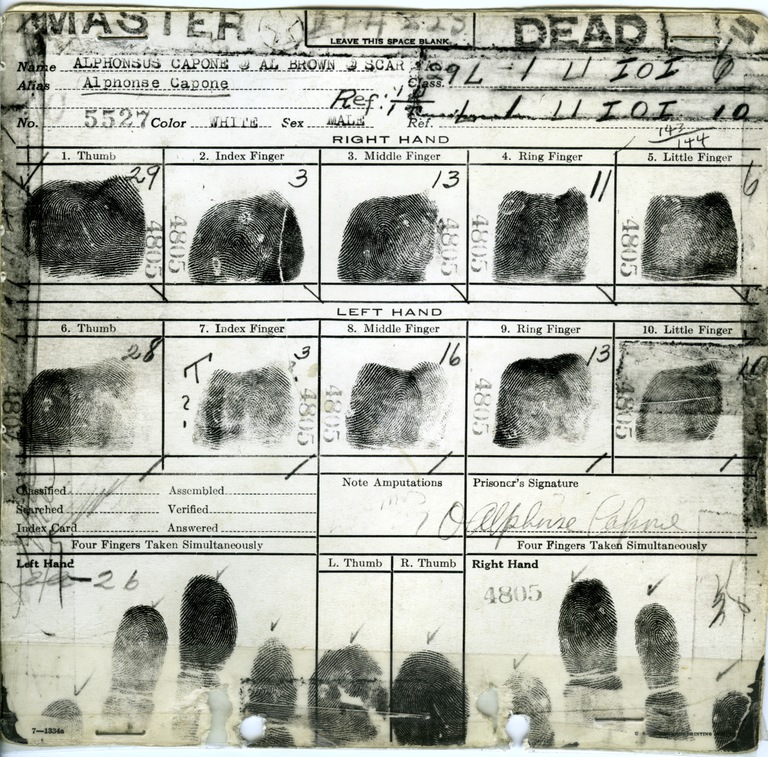 MASTER DEAD
LEAVE THIS SPACE BLANK
Name ALPHONSUS CAPONE @ AL BROWN @ SCAR Class. 9 L 1 U IOI 6
Alias Alphonse Capone
Ref: 1 1 U IOI 10
No. 5527 Color WHITE Sex MALE Ref.
142
144
RIGHT HAND
1. Thumb 2. Index Finger 3. Middle Finger 4. Ring Finger 5. Little Finger
29 3 13 11 6
4805 4805 4805 4805 4805
LEFT HAND
6. Thumb 7. Index Finger 8. Middle Finger 9. Ring Finger 10. Little Finger
28 T ? 3 16 13 10
4805 4805 4805 4805 4805
Classified Assembled Note Amputations Prisoner's Signature
Searched Verified
Index Card Answered Alphonse Capone
Four Fingers Taken Simultaneously Four Fingers Taken Simultaneously
Left Hand L. Thumb R. Thumb Right Hand
26
4805
7—1334a